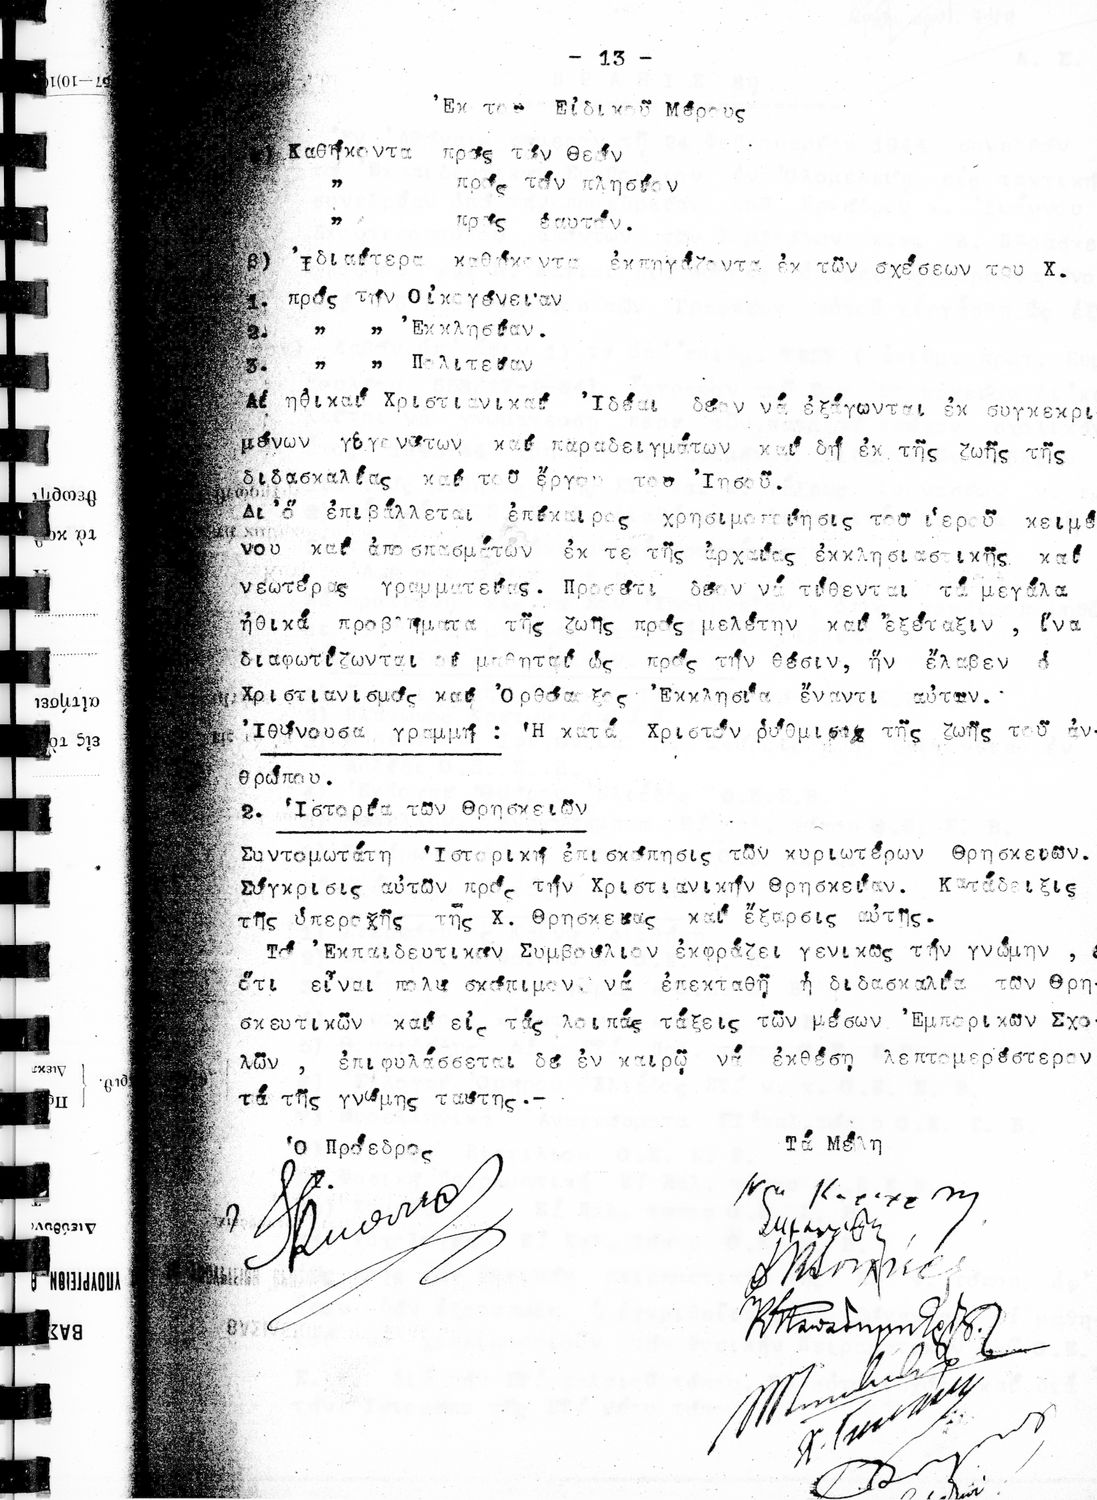 - 13 -
Ἐκ του Εἰδικοῦ Μέρους
) Καθήκοντα πρός τόν Θεόν
" πρός τόν πλησίον
" πρός ἑαυτόν.
β) Ἰδιαίτερα καθήκοντα ἐκπηγάζοντα ἐκ τῶν σχέσεων του Χ.
1. πρός τήν Οἰκογένειαν
2. " " Ἐκκλησίαν.
3. " " Πολιτείαν
Αἱ ηθικαί Χριστιανικαί Ἰδέαι δέον νά ἐξάγωνται ἐκ συγκεκρι-
μένων γεγονότων καί παραδειγμάτων καί δή ἐκ τῆς ζωῆς τῆς
διδασκαλίας καί τοῦ ἔργου του Ἰησοῦ.
Δι'ὅ ἐπιβάλλεται ἐπίκαιρος χρησιμοποίησις του ἱεροῦ κειμέ
νου καί ἀποσπασμάτων ἐκ τε τῆς ἀρχαίας ἐκκλησιαστικῆς καί
νεωτέρας γραμματείας. Προσέτι δέον νά τίθενται τά μεγάλα
ἠθικά προβλήματα τῆς ζωῆς πρός μελέτην καί ἐξέταξιν , ἵνα
διαφωτίζωνται οἱ μαθηταί ὡς πρός τήν θέσιν, ἥν ἔλαβεν ὁ
Χριστιανισμός καί Ὀρθόδοξος Ἐκκλησία ἔναντι αὐτων.
Ἰθύνουσα γραμμή : Ἡ κατά Χριστόν ρύθμισις τῆς ζωῆς τοῦ ἀν-
θρώπου.
2. Ἱστορία τῶν Θρησκειῶν
Συντομωτάτη Ἱστορική ἐπισκόπησις τῶν κυριωτέρων Θρησκειῶν.
Σύγκρισις αὐτῶν πρός τήν Χριστιανικήν Θρησκείαν. Κατάδειξις
τῆς ὑπεροχῆς τῆς Χ. Θρησκείας καί ἔξαρσις αὐτῆς.
Τό Ἐκπαιδευτικόν Συμβούλιον ἐκφράζει γενικῶς τήν γνώμην ,
ὅτι εἶναι πολύ σκόπιμον νά ἐπεκταθῆ ἡ διδασκαλία τῶν Θρη-
σκευτικῶν καί εἰς τάς λοιπάς τάξεις τῶν μέσων Ἐμπορικῶν Σχο-
λῶν , ἐπιφυλάσσεται δέ ἐν καιρῷ νά ἐκθέση λεπτομερέστερον
τά τῆς γνώμης ταύτης.-
Ὁ Πρόεδρος Τά Μέλη